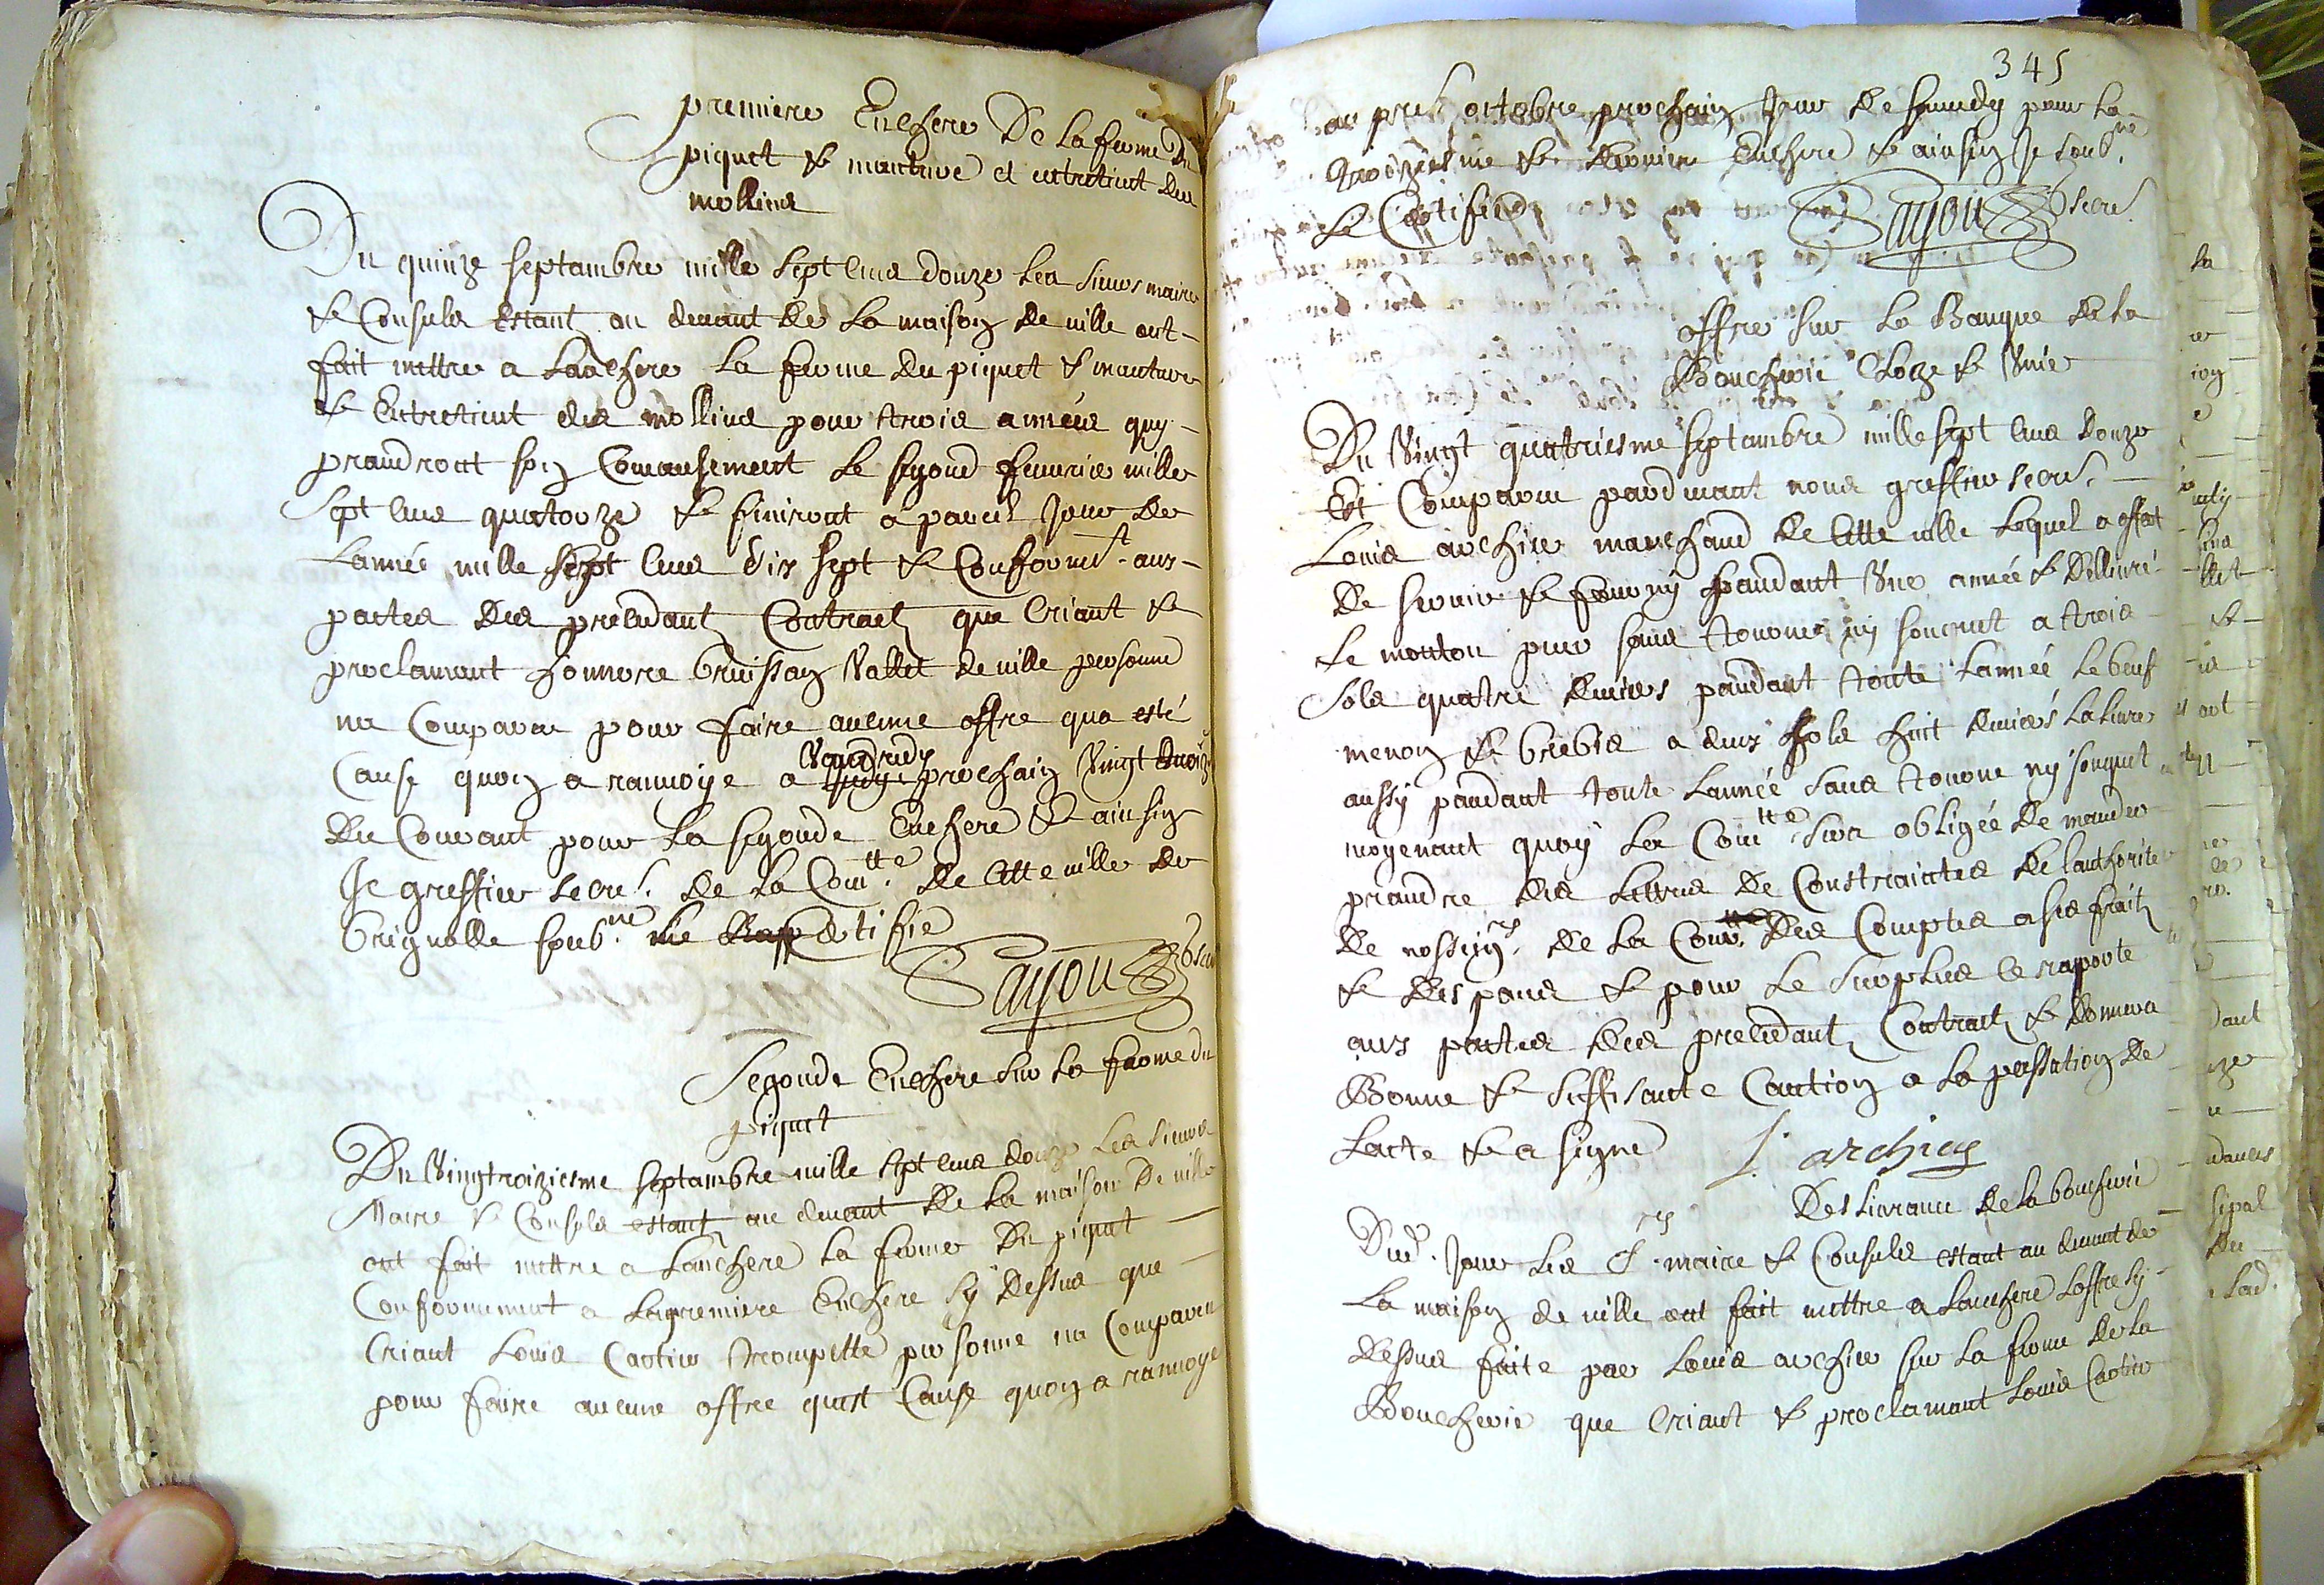 premiere Enchere De La ferme Du
piquet & mouture et entretient des
mollins
Du quinze septambre mille sept cens douze les sieurs maire
& Consuls estant au devant de la maison de ville ont
fait mettre a Lanchere la ferme du piquet & mouture
& Entretient des mollins pour trois années quy
prandront son Comansement le segond fevrier mille
sept cens quatorze & finiront a pareil jour de
Lannée mille sept cens dix sept & Conformt. aux
pactes des precedant Contract que Criant &
proclamant honnore bruissan Vallet de ville personne
na Comparu pour faire aucune offre qua esté
Cause quon a ranvoye a Vandredy prochain Vingt troize
Du Courant pour La segonde Enchere & ainsin
Je greffier secre. de La Comtte. de Cette ville de
brignolle soubne. me certifie
Sayou secre
Segonde Enchere sur La ferme du
piquet
Du Vingtroiziesme septambre mille sept cens douze Les sieurs
Maire & Consuls estant au devant de La maison De ville
ont fait mettre a Lanchere La ferme Du piquet
Conformement a La premiere Enchere sy Dessus que
Criant Louis Cartier trompette personne na Comparu
pour faire aucune offre quest Cause quon a ranvoyé
345
au octobre prochain jour de pour La
troiziesme & derniere Enchere & ainsin Je soubne.
Le Certifie
Sayou secre.
offre sur La Banque de La
Boucherie Cloze & Unie
Du Vingt quatriesme septambre mille sept cens douze
Est Comparu pardevant nous greffier secre.
Louis archier marchand de Cette ville Lequel a offert
de servir & fournir pandant Une année & Dellivré
Le mouton pur sans ny a trois
sols quatre deniers pandant toute Lannée Le beuf
menon & brebis a deux sols huit deniers La livre
aussy pandant toute Lannée sans ny souquet
moyenant quoy La Comtte. sera obligée De mander
prandre des Lettres De Constraintes de Lauthorite
de nosseigrs. de La Cour Des Comptes a ses frait
& Despans & pour Le surplus Ce raporte
aux pactes des precedant Contract & donnera
Bonne & suffisante Caution a La passation de
Lacte & a signé L. archier
Deslivrance de La boucherie
Dud. Jour Les srs. maire & Consuls estant au devant de
La maison de ville ont fait mettre a Lanchere Loffre sy
dessus faite par Louis archier sur La ferme de La
Boucherie que Criant & proclamant Louis Cartier